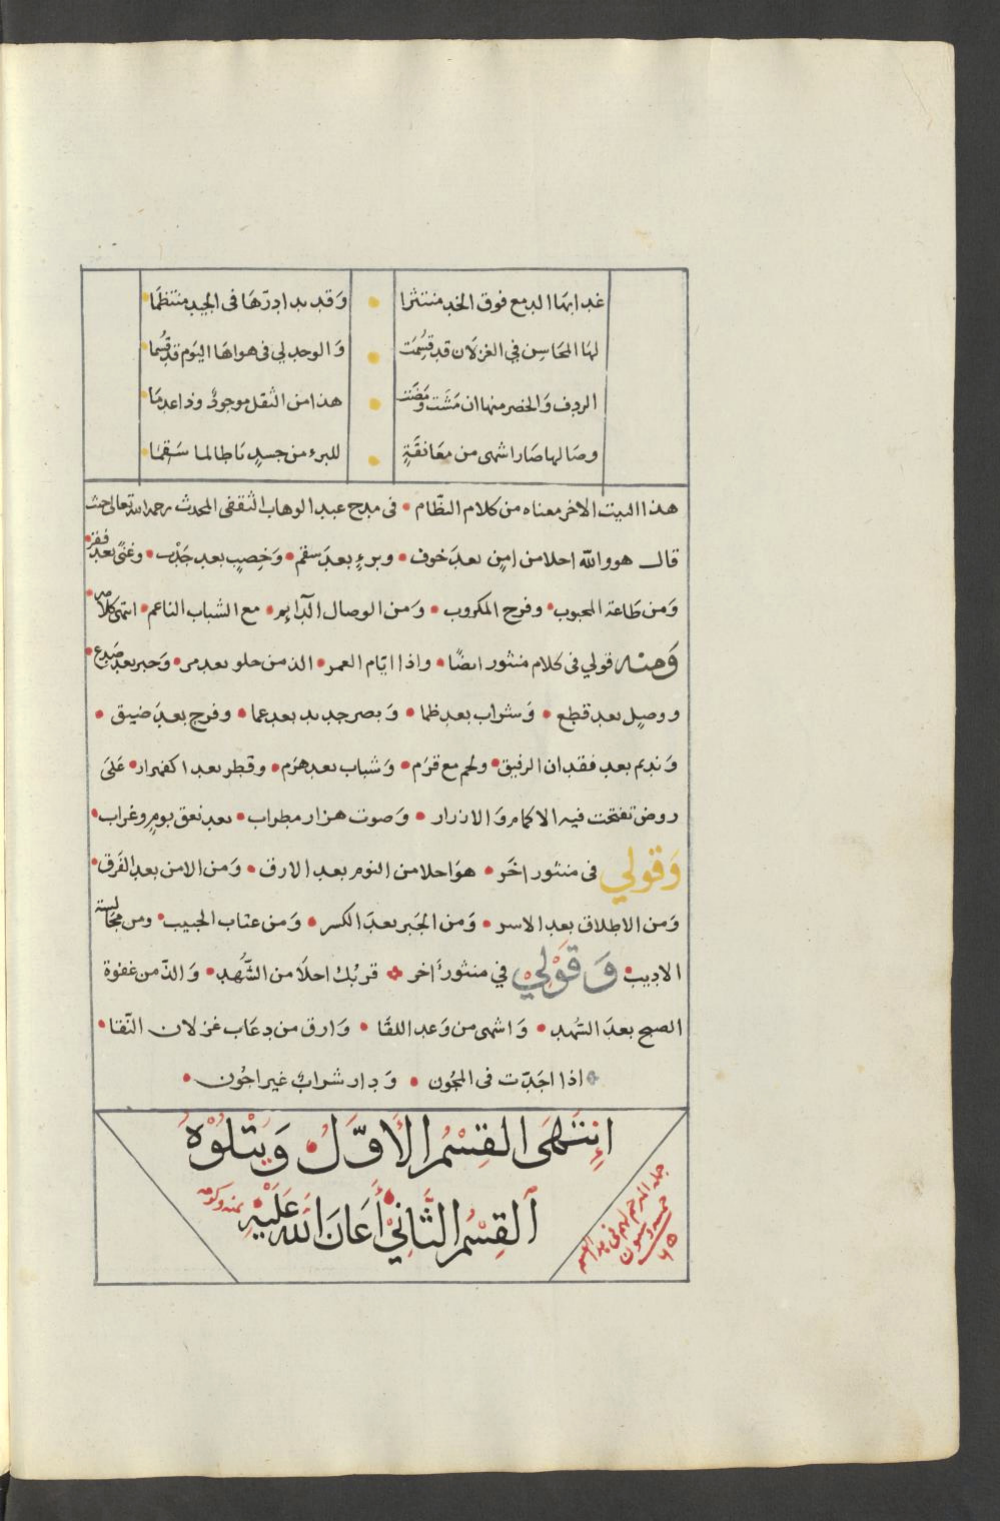 غدا بها الدمع فوق الخد منتثرا • وَقد بدا درّهَا فى الجيد منتظمَا
لهَا المحَاسِن فِي الغزلَان قد قسِّمَت • وَالوجد لي فى هواهَا اليَوم قد قُسِما
الردف وَالخصر منها ان مَشَت وَمَضَت • هذا من الثقل موجودٌ وذا عدمَا
وصَالها صَار اشهى من معَانقَةٍ • للبرء من جسدٍ مَا طالما سَقِمَا
هذا البيت الاخر معناه من كلام النظّام • فى مدح عبد الوهاب الثقفى المحدث رحمه الله تعالى حيث
قال هو والله احلا من امنٍ بعدَ خوف • وبرءٍ بعدَ سقم • وَخِصبٍ بعد جَدْب • وغنًى بعد فقر
وَمن طَاعة المحبوب • وفرج المكروب • وَمن الوصال الدَّايم • مع الشباب الناعم • انتهى كلامه
وَمنه قولي فى كلام منثور ايضًا • واذا ايّام العمر • الذ من حلو بعد مر • وَجبر بعد صَدع
ووصِل بعد قطع • وَشراب بعد ظما • وَبصر جديد بعد عما • وفرج بعدَ ضيق •
وَنديم بعد فقدان الرفيق • ولحم مع قرَم • وَشباب بعد هرَم • وقطر بعد اكفهرار • عَلىَ
روض تفتحت فيه الاكمام وَالازرار • وَصوت هزار مطراب • بعد نعق بومٍ وغراب •
وَقولي فى منثور اخَر • هوَ احلا من النوم بعد الارق • وَمن الامن بعد الفَرق •
وَمن الاطلاق بعد الاسر • وَمن الجَبر بعدَ الكسر • وَمن عتاب الحبيب • ومن مجَالسة
الاديب • وَقَوْلِيْ فِي منثور أخر • قربُك احلَا من الشَّهد • وَالذّ من غفوة
الصبح بعدَ السُهد • وَاشهى من وَعد اللقَا • وَارق من دعَاب غزلان النّقا •
اذا اجَدّت فى المجُون • وَدار شرابٌ غير اجُون •
اِنتَهَى القِسْمُ الأَوَّلُ وَيَتْلُوْهُ
اَلقِسْمُ الثَّانِيْ أَعَانَ اللّه عَلَيْهِ
بمنه وكرمه
خمسة وستون
٦٥